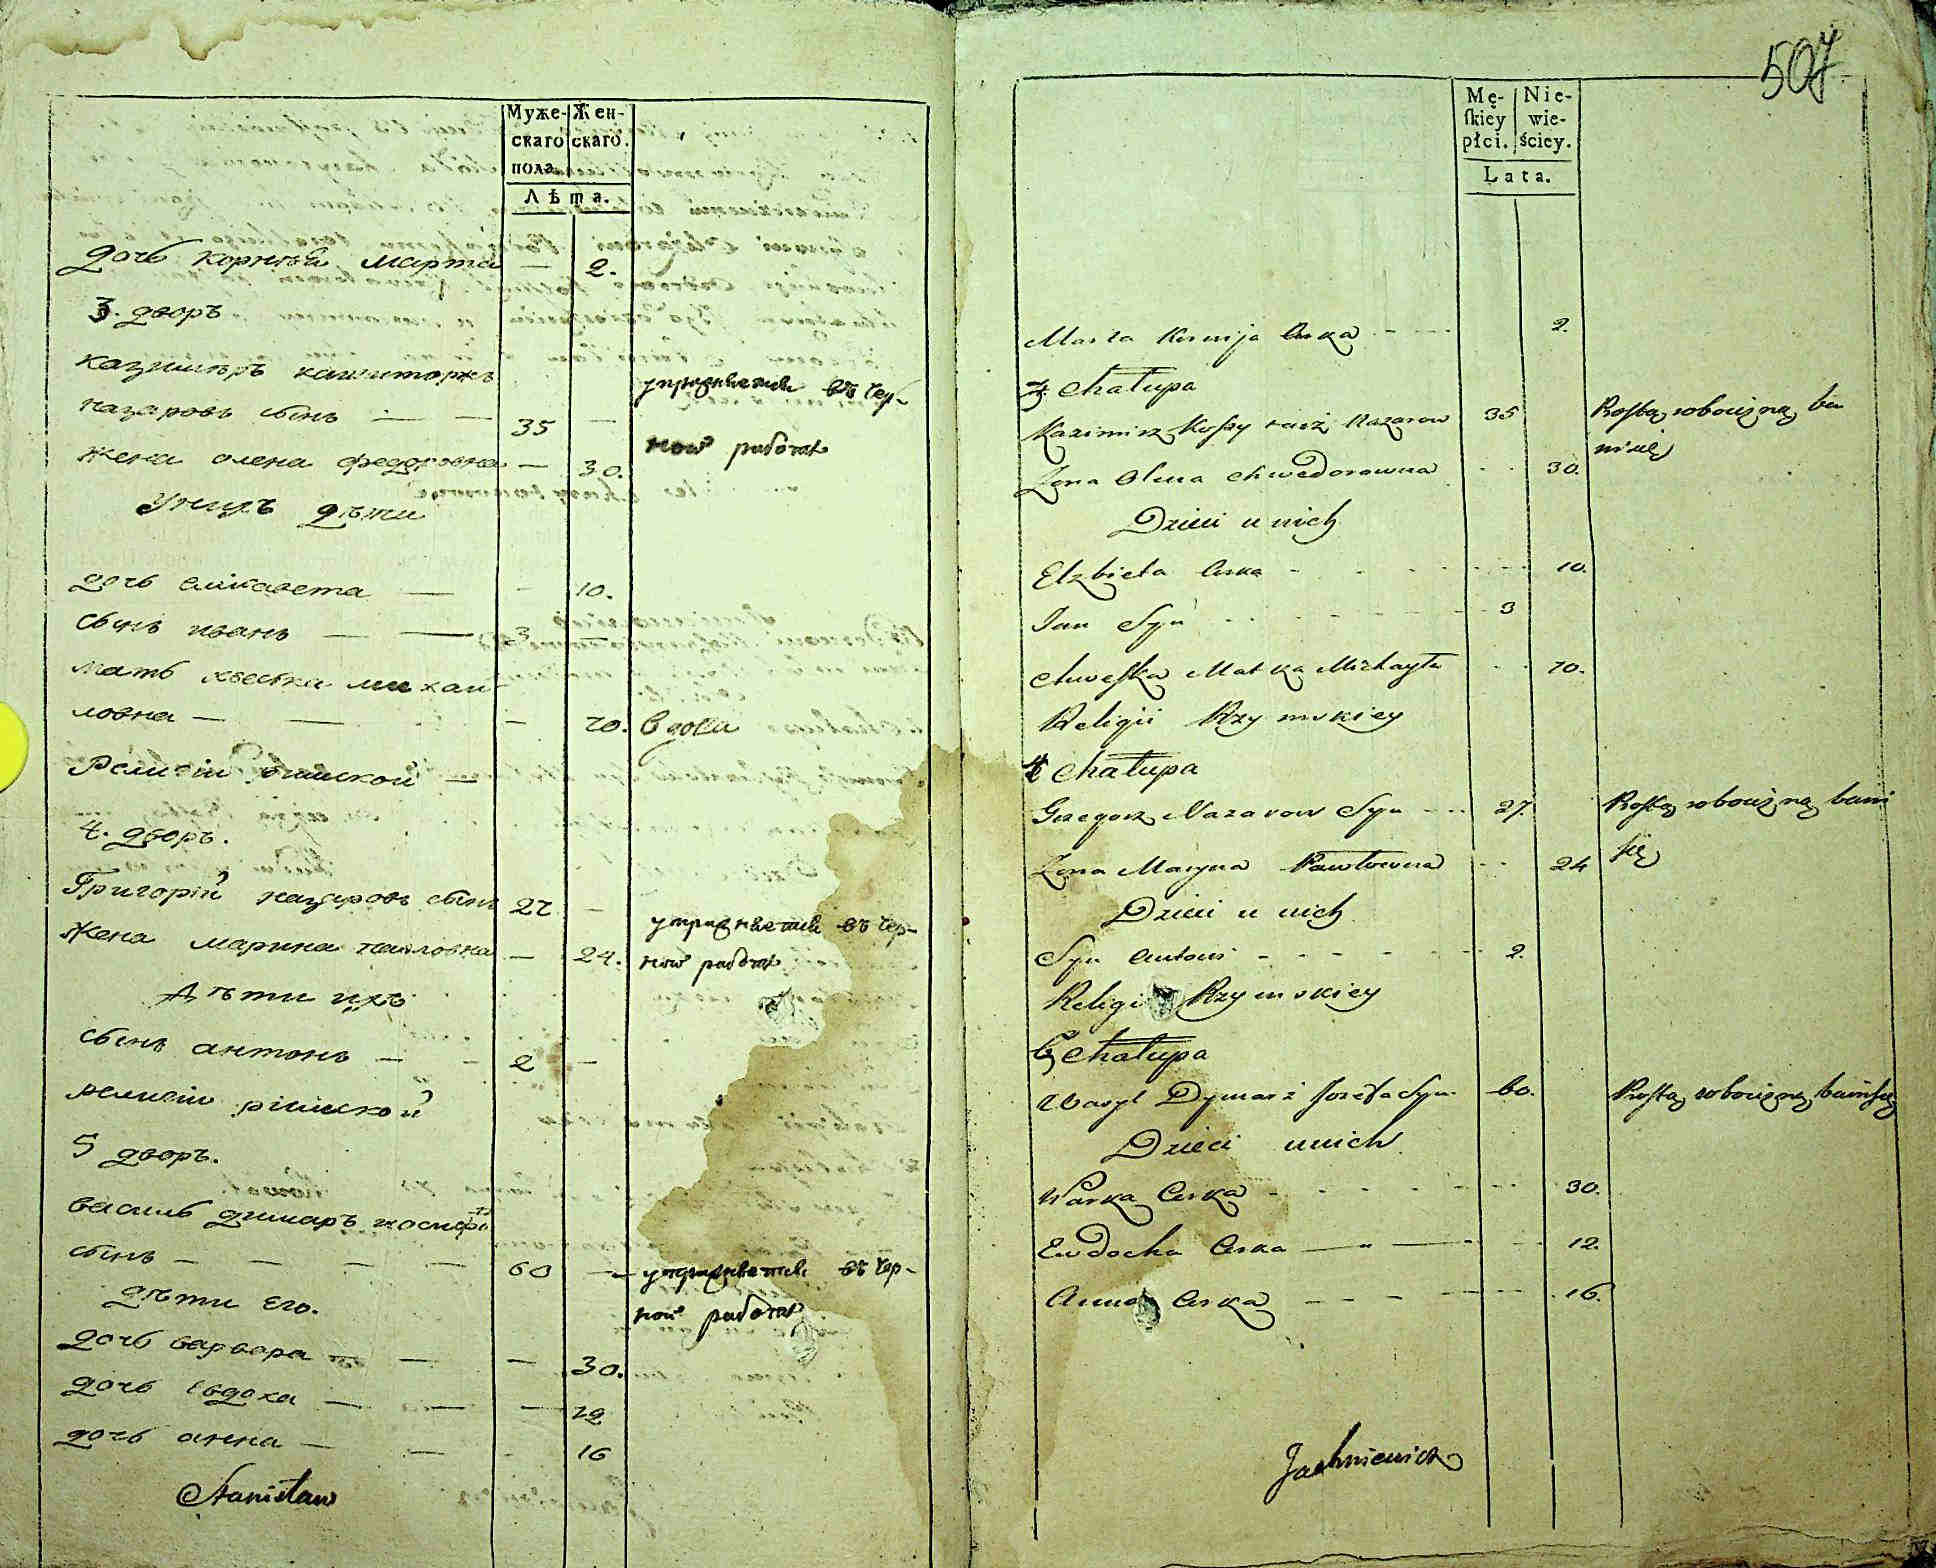 Муже- Жен-
скаго скаго.
пола
Лѣта.
дочь корнѣя марта — 2.
3. дворъ
казимѣръ
назаровъ сынъ — — 35 —
упражняется въ чер-
ной работѣ
жена олена федоровна — 30.
у нихъ дѣти
дочь елисавета — - 10.
сынъ иванъ — — 3 —
мать хвеська михаи-
ловна — — - 70. вдова
Религіи римской —
4. дворъ.
Григорій назаровъ сынъ 27 -
упражняется въ чер-
жена марина павловна — 24. ной работѣ
дѣти ихъ
сынъ антонъ — - 2 —
религіи римской
5 дворъ.
василь димаръ иосифа
сынъ — — — — 60 — упражняется въ чер-
дѣти его. ной работѣ
дочь варвара — — — 30.
дочь евдоха — — — 12
дочь анна — — - 16
Stanisław
507.
Mę- Nie-
ſkiey wie-
płci. ściey.
Lata.
Marta Kornija Curka 2.
3 Chałupa
Kazimirz Nazarow 35 Rostą robocizną ba
wi się
Zona Olena Chwedorowna 30.
Dzieci u nich
Elzbieta Curka 10.
Jan Syn 3
Chweśka Matka Michayła 70.
Religii Rzymskiey
4 Chałupa
Grzegorz Nazarow Syn 27. Rostą robocizną bawi
się
Zona Maryna Pawłowna 24
Dzieci u nich
Syn Antoni 2.
Religii Rzymskiey
5 Chałupa
Wasyl Dymarz Jozefa Syn 60. Rostą robocizną bawi się
Dzieci u nich
Warka Curka 30.
Ewdocha Curka 12.
Anna Curka 16.
Jachniewicz